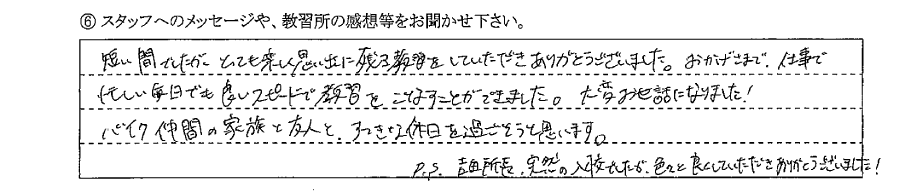 ⑥ スタッフへのメッセージや、教習所の感想等をお聞かせ下さい。
短い間でしたが、とても楽しく思い出に残る教習をしていただきありがとうございました。おかげさまで、仕事で
忙しい毎日でも良いスピードで教習をこなすことができました。大変お世話になりました!
バイク仲間の家族と友人と、すてきな休日を過ごそうと思います。
P.S. 吉田所長、突然の入校でしたが、色々と良くしていただきありがとうございました!